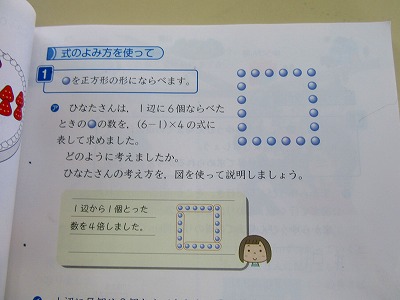 式のよみ方を使って
1
●を正方形の形にならべます。
㋐ ひなたさんは、1辺に6個ならべた
ときの●の数を、(6-1)×4の式に
表して求めました。
どのように考えましたか。
ひなたさんの考え方を、図を使って説明しましょう。
1辺から1個とった
数を4倍しました。